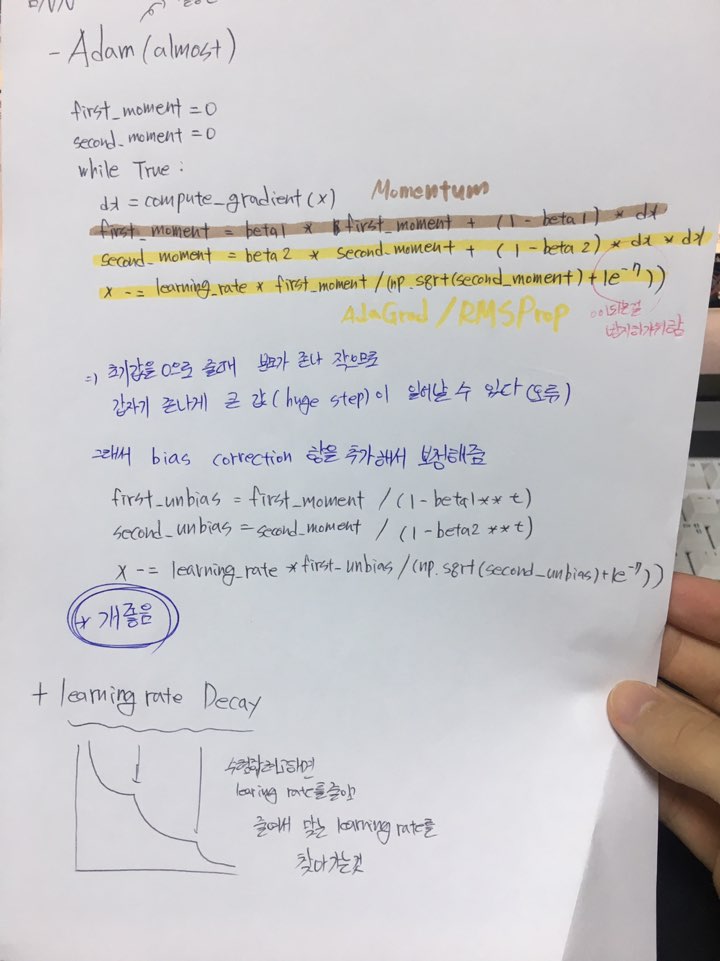 - Adam (almost)
first_moment = 0
second_moment = 0
while True :
dx = compute_gradient (x)
Momentum
first_moment = beta1 * first_moment + (1 - beta1) * dx
second_moment = beta2 * second_moment + (1 - beta2) * dx * dx
x -= learning_rate * first_moment / (np.sqrt(second_moment) + 1e-7))
AdaGrad / RMSProp
0이되는걸
방지하기위함
=) 초기값을 0으로 줄때 분모가 존나 작으므로
갑자기 존나게 큰 값 (huge step) 이 일어날 수 있다 (오류)
그래서 bias correction 항을 추가해서 보정해줌
first_unbias = first_moment / (1 - beta1 ** t)
second_unbias = second_moment / (1 - beta2 ** t)
x -= learning_rate * first_unbias / (np.sqrt(second_unbias) + 1e-7))
* 개좋음
+ learning rate Decay
수렴할려고하면
learing rate를 줄여
줄여서 맞는 learning rate를
찾아가는것